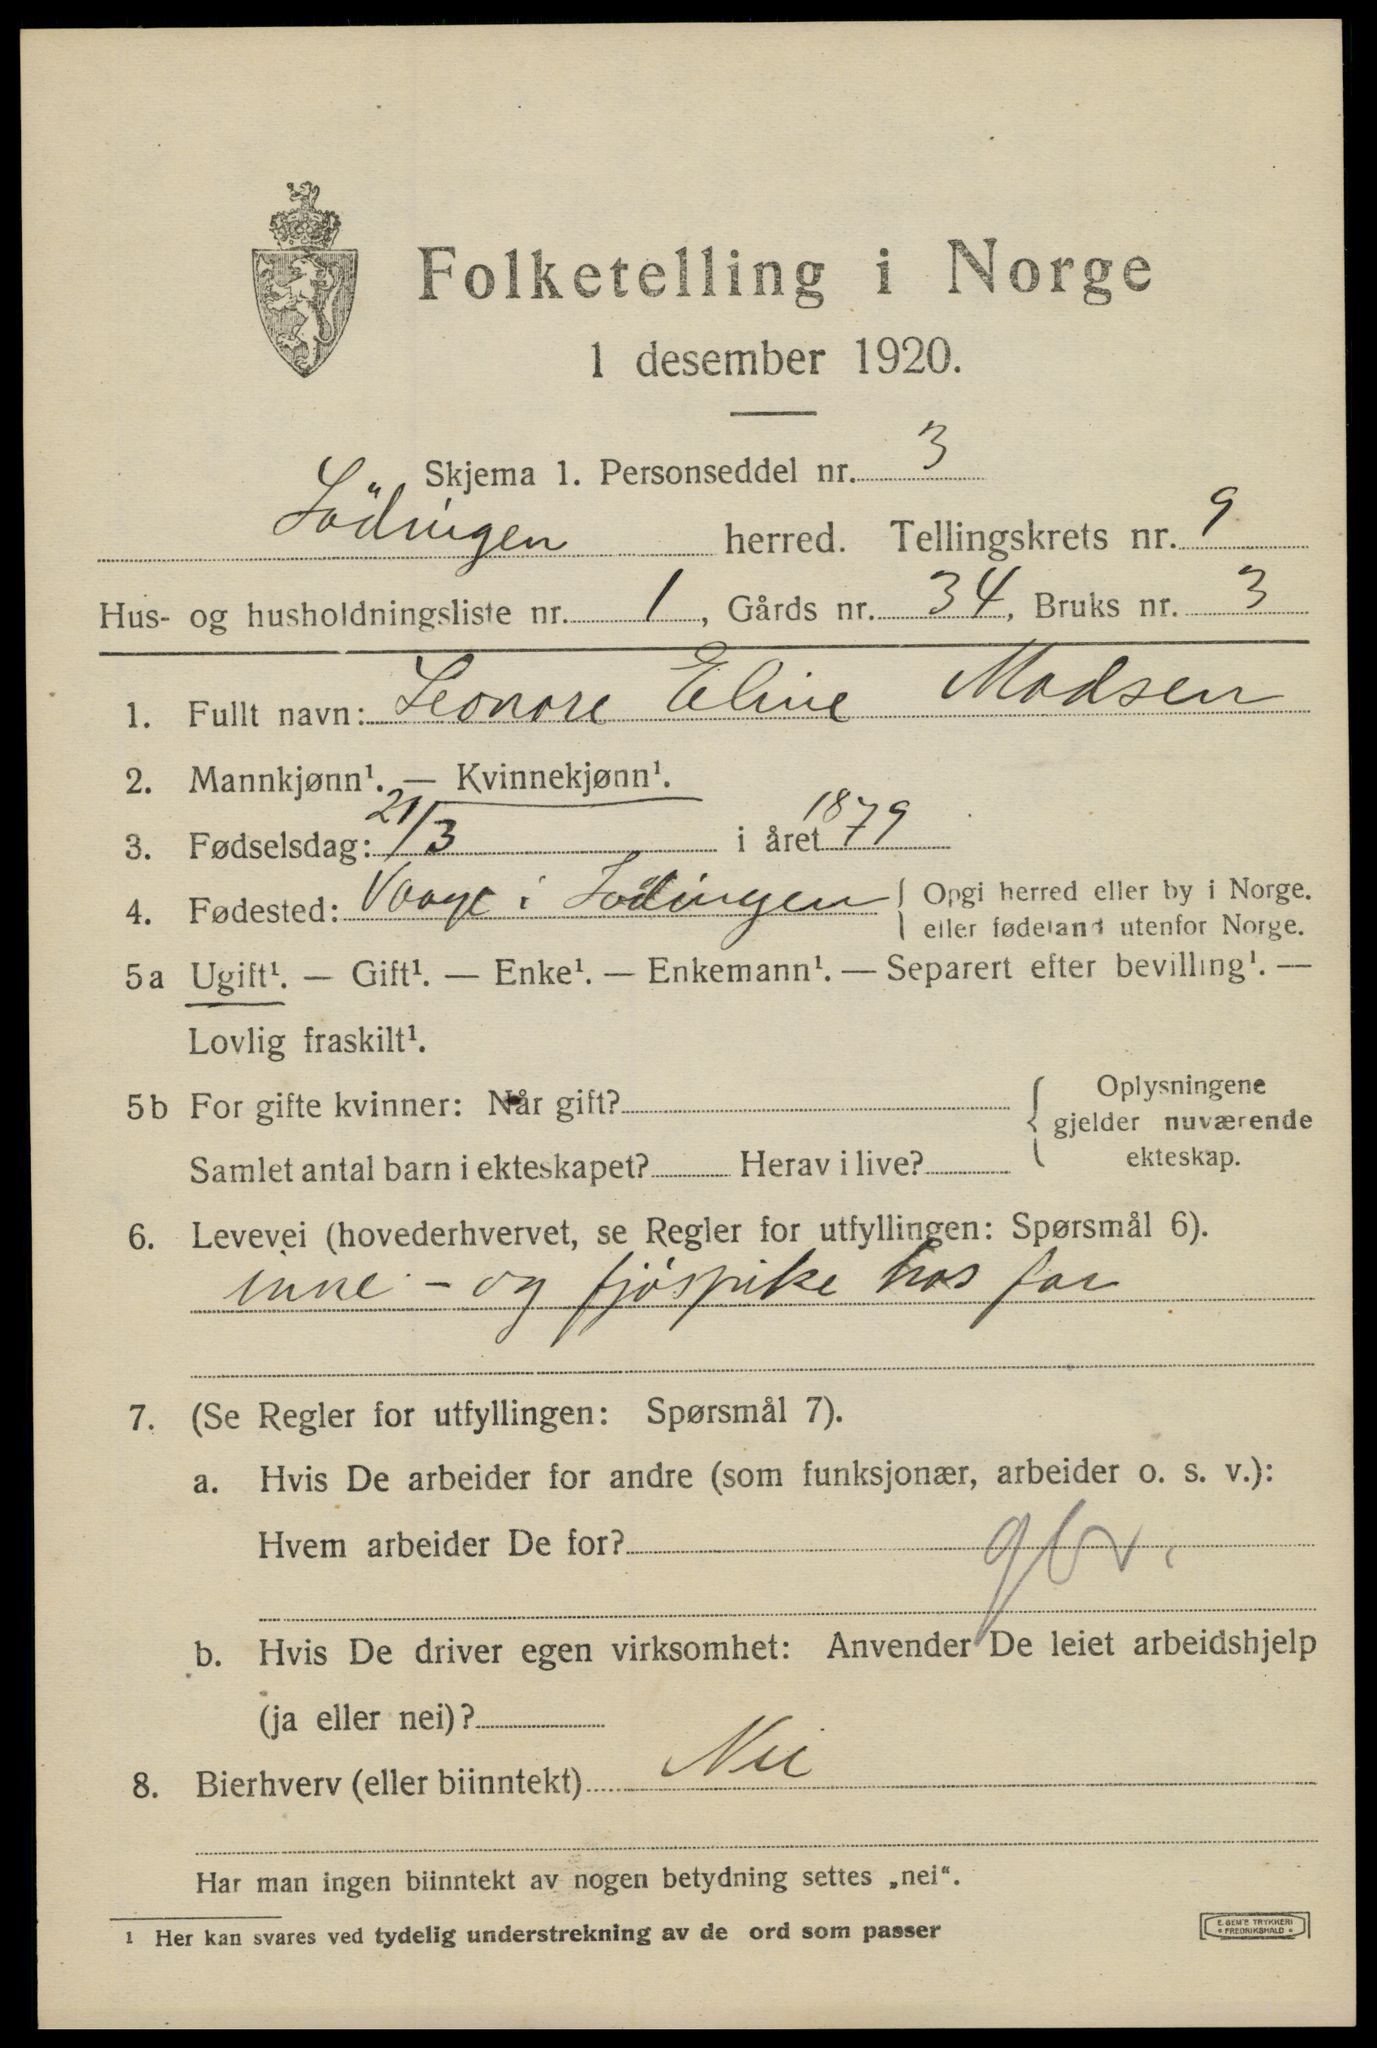 Folketelling i Norge
1 desember 1920.
Skjema 1. Personseddel nr. 3
Lödingen herred. Tellingskrets nr. 9
Hus- og husholdningsliste nr. 1, Gårds nr. 34, Bruks nr. 3
1. Fullt navn: Leonore Eline Madsen
2. Mannkjønn¹. — Kvinnekjønn¹.
3. Fødselsdag: 21/3 i året 1879
4. Fødested: Vaage i Lødingen { Opgi herred eller by i Norge.
eller fødeland utenfor Norge.
5a Ugift¹. — Gift¹. — Enke¹. — Enkemann¹. — Separert efter bevilling¹. —
Lovlig fraskilt¹.
5b For gifte kvinner: Når gift?
Samlet antal barn i ekteskapet? Herav i live?
Oplysningene
gjelder nuværende
ekteskap.
6. Levevei (hovederhvervet, se Regler for utfyllingen: Spørsmål 6).
inne- og fjøspike hos far
7. (Se Regler for utfyllingen: Spørsmål 7).
a. Hvis De arbeider for andre (som funksjonær, arbeider o. s. v.):
Hvem arbeider De for?
b. Hvis De driver egen virksomhet: Anvender De leiet arbeidshjelp
(ja eller nei)?
8. Bierhverv (eller biinntekt) Nei
Har man ingen biinntekt av nogen betydning settes „nei“.
¹ Her kan svares ved tydelig understrekning av de ord som passer
E. SEM'S TRYKKERI
• FREDRIKSHALD •